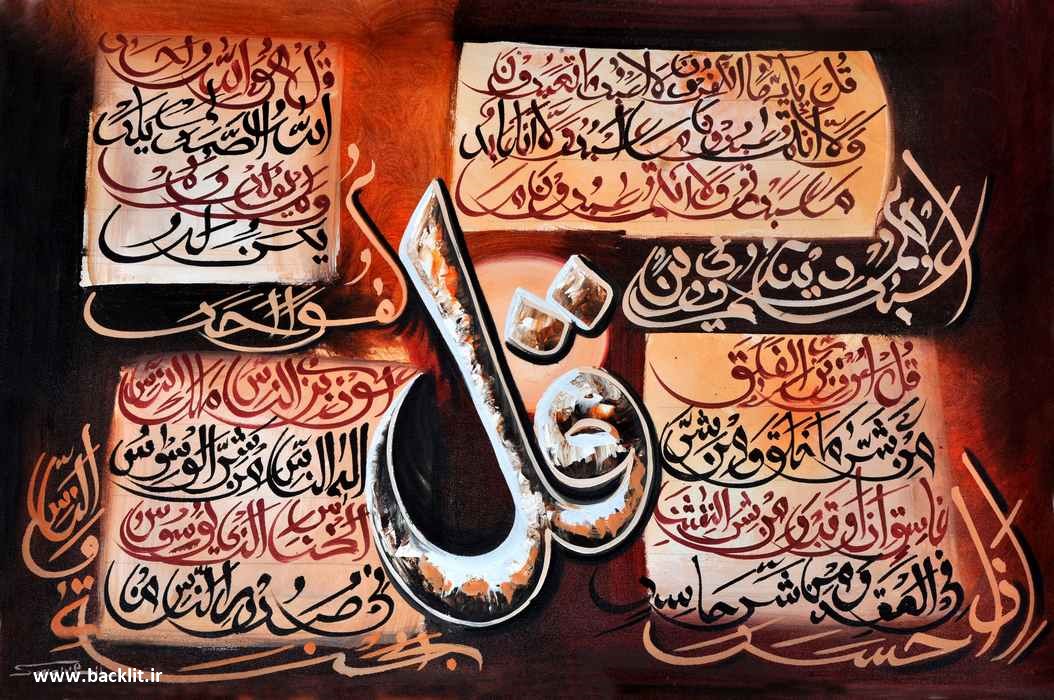 قل يا ايها الكفرون لا اعبد ما تعبدون
ولا انتم عبدون ما اعبد ولا انا عابد
ما عبدتم ولا انتم عبدون ما
اعبد لكم دينكم ولي دين
قل هو الله احد
الله الصمد لم يلد
ولم يولد ولم
يكن له
كفوا احد
قل
قل اعوذ برب الفلق
من شر ما خلق ومن شر
غاسق اذا وقب ومن شر النفثت
في العقد ومن شر حاسد
اذا حسد
اعوذ برب الناس ملك الناس
اله الناس من شر الوسواس
الخناس الذي يوسوس
في صدور الناس من
الجنة والناس
www.backlit.ir